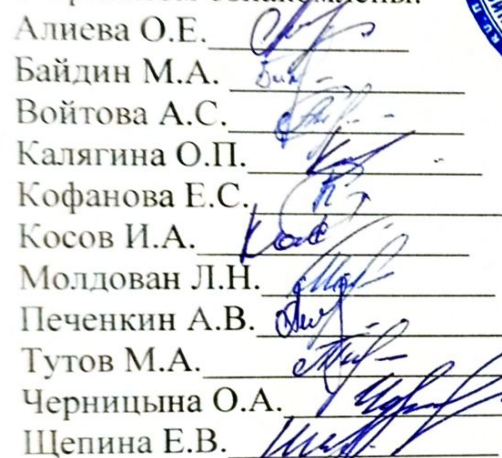 ознакомлены:
Алиева О.Е.
Байдин М.А.
Войтова А.С.
Калягина О.П.
Кофанова Е.С.
Косов И.А.
Молдован Л.Н.
Печенкин А.В.
Тутов М.А.
Черницына О.А.
Щепина Е.В.